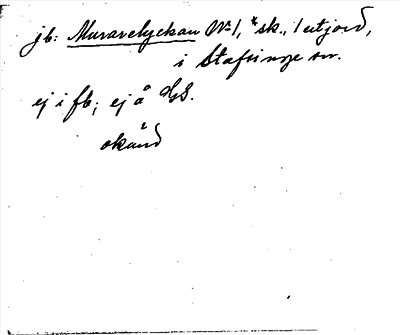 jb: Murarelyckan No 1, *sk., 1 utjord,
i Stafsinge sn.
ej i fb; ej å GS.
okänd